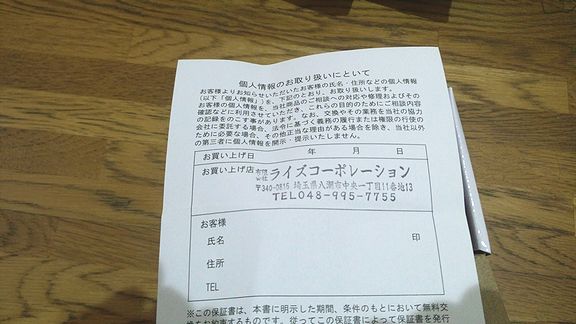 個人情報のお取り扱いにといて
お客様よりお知らせいただいたお客様の氏名・住所などの個人情報
(以下「個人情報」)を、下記のとおり、お取り扱いします。
お客様の個人情報を、当社商品のご相談への対応や修理およびその
確認などに利用させていただき、これらの目的のためにご相談内容
の記録をのこす事があります。なお、交換やその業務を当社の協力
会社に委託する場合、法令に基づく義務の履行または権限の行使の
ために必要な場合、その他正当な理由がある場合を除き、当社以外
の第三者に個人情報を開示・提示いたしません。
お買い上げ日 年 月 日
お買い上げ店 有限会社 ライズコーポレーション
〒340-0816 埼玉県八潮市中央一丁目11番地13
TEL048-995-7755
お客様
氏名 印
住所
TEL
※この保証書は、本書に明示した期間、条件のもとにおいて無料交
換をお約束するものです。従ってこの保証書によって保証書を発行